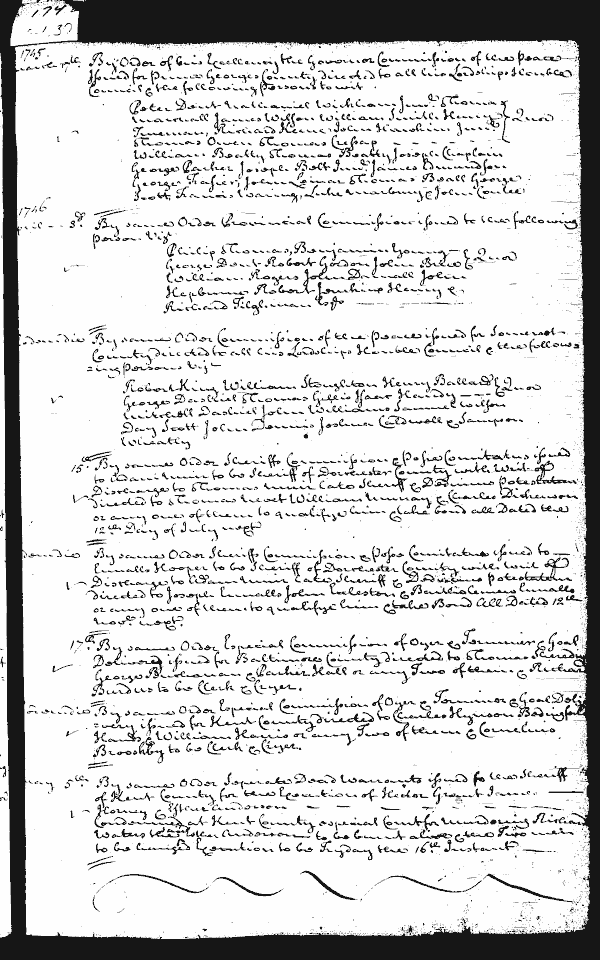 174
1745.
March 17th By Order of his Excellency the Governor Commission of the Peace
Issued for Prince Georges County directed to all his Lordships Honble
Council & the following Persons to wit
Peter Dent Nathaniel Wickham Junr. Thomas
Marshall James Wilson William Smith Henry Quor
Trueman, Richard Keene John Hawkins Junr
Thomas Owen Thomas Cresap
William Beatty Thomas Beatty Joseph Chaplain
George Parker Joseph Belt Junr James Edmundson
George Frasier, John Lamar Thomas Beall George
Scott, Francis Waring, Luke Marbury & John Cooke
1746
April 8th By same Order Provincial Commission issued to the following
persons Viz
Philip Thomas, Benjamin Young
George Dent Robert Gordon John Brice Quor
William Rogers John Darnall John
Hepburne Robert Jenkins Henry &
Richard Tilghman Esqrs
eodem die By same Order Commission of the Peace issued for Somerset
County directed to all his Lordships Honble Council & the follow=
=ing Persons Viz
Robert King William Stoughton Henry Ballard Quor
George Dashiel Thomas Gillis Isaac Handy
Mitchell Dashiel John Williams Samuel Wilson
Day Scott John Dennis Joshua Caldwell & Sampson
Wheatly
15th By same Order Sheriffs Commission & Posse Comitatus issued
to Adam Muir to be Sheriff of Dorchester County with Writ of
Discharge to Thomas Muir late Sheriff & Dedimus Potestatem
directed to Thomas Nevet William Murray & Charles Dickenson
or any one of them to qualifye him & take bond all Dated the
12th Day of July next
eodem die By same Order Sheriffs Commission & Posse Comitatus issued to
Ennalls Hooper to be Sheriff of Dorchester County with writ of
Discharge to Adam Muir late Sheriff & Dedimus Potestatem
directed to Joseph Ennalls John Eccleston & Bartholomew Ennalls
or any one of them to qualifye him & take Bond All Dated 12th
Novr. next.
17th By same Order Especial Commission of Oyer & Terminer & Goal
Delivery issued for Baltimore County directed to Thomas Sheredine
George Buchanan & Parker Hall or any Two of them & Richard
to be Clerk & Cryer.
eodem die By same Order Especial Commission of Oyer & Terminer & Goal Deli
=very issued for Kent County directed to Charles Hynson Bedingfield
Hands & William Harris or any Two of them & Cornelius
to be Clerk & Cryer.
May 5th By same Order Seperate Dead Warrants issued to the Sheriff
of Kent County for the Execution of Hector Grant James
Horney & Esther Anderson
Condemned at Kent County especial Court for murdering Richard
Waters the Esther Anderson to be burnt alive & the Two men
to be hanged Execution to be Fryday the 16th Instant